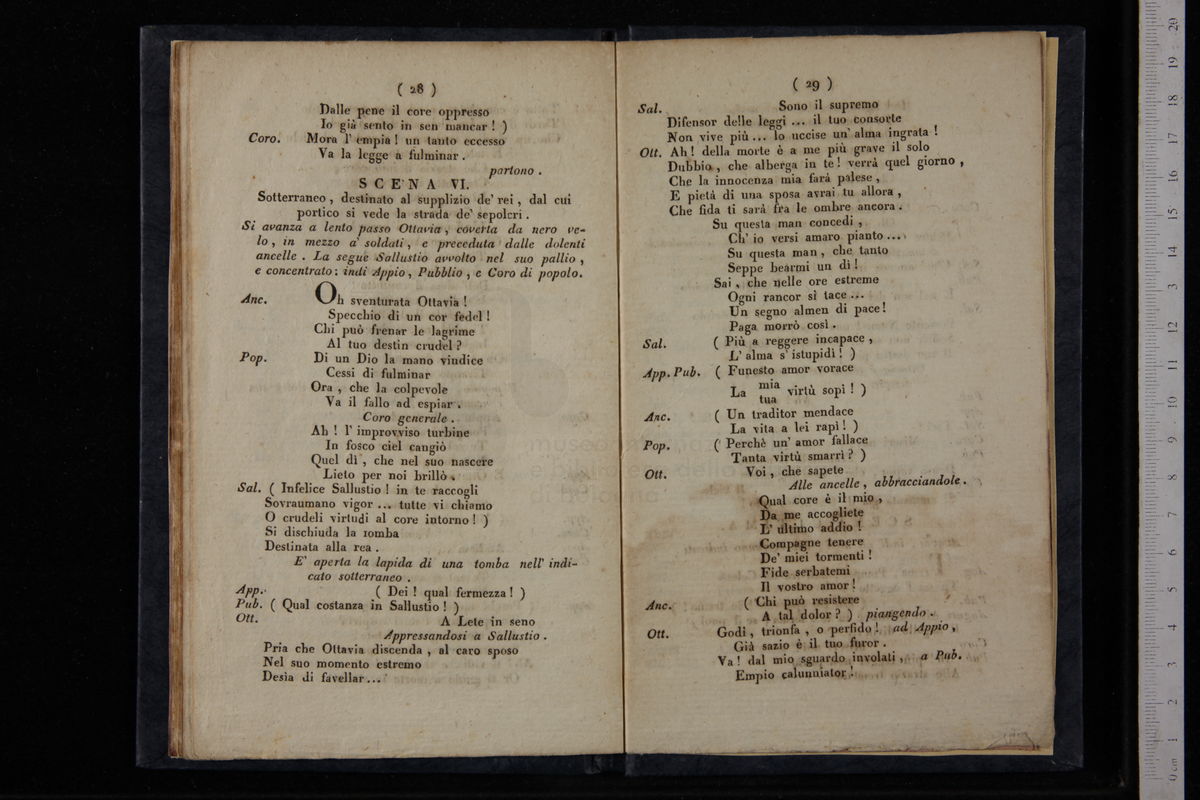 ( 28 )
Dalle pene il core oppresso
Io già sento in sen mancar ! )
Coro. Mora l' empia ! un tanto eccesso
Va la legge a fulminar .
partono .
SCENA VI.
Sotterraneo , destinato al supplizio de' rei , dal cui
portico si vede la strada de' sepolcri .
Si avanza a lento passo Ottavia , coverta da nero ve-
lo , in mezzo a' soldati , e preceduta dalle dolenti
ancelle . La segue Sallustio avvolto nel suo pallio ,
e concentrato : indi Appio , Pubblio , e Coro di popolo.
Anc. Oh sventurata Ottavia !
Specchio di un cor fedel !
Chi può frenar le lagrime
Al tuo destin crudel ?
Pop. Di un Dio la mano vindice
Cessi di fulminar
Ora , che la colpevole
Va il fallo ad espiar .
Coro generale .
Ah ! l' improvviso turbine
In fosco ciel cangiò
Quel dì , che nel suo nascere
Lieto per noi brillò .
Sal. ( Infelice Sallustio ! in te raccogli
Sovraumano vigor ... tutte vi chiamo
O crudeli virtudi al core intorno ! )
Si dischiuda la tomba
Destinata alla rea .
E' aperta la lapida di una tomba nell' indi-
cato sotterraneo .
App. ( Dei ! qual fermezza ! )
Pub. ( Qual costanza in Sallustio ! )
Ott. A Lete in seno
Appressandosi a Sallustio .
Pria che Ottavia discenda , al caro sposo
Nel suo momento estremo
Desìa di favellar ...
( 29 )
Sal. Sono il supremo
Difensor delle leggi ... il tuo consorte
Non vive più ... lo uccise un' alma ingrata !
Ott. Ah ! della morte è a me più grave il solo
Dubbio , che alberga in te ! verrà quel giorno ,
Che la innocenza mia farà palese ,
E pietà di una sposa avrai tu allora ,
Che fida ti sarà fra le ombre ancora .
Su questa man concedi ,
Ch' io versi amaro pianto ...
Su questa man , che tanto
Seppe bearmi un dì !
Sai , che nelle ore estreme
Ogni rancor sì tace ...
Un segno almen di pace !
Paga morrò così .
Sal. ( Più a reggere incapace ,
L' alma s' istupidì ! )
App. Pub. ( Funesto amor vorace
La mia virtù sopì ! )
tua
Anc. ( Un traditor mendace
La vita a lei rapì ! )
Pop. ( Perchè un' amor fallace
Tanta virtù smarrì ? )
Ott. Voi , che sapete
Alle ancelle , abbracciandole .
Qual core è il mio ,
Da me accogliete
L' ultimo addio !
Compagne tenere
De' miei tormenti !
Fide serbatemi
Il vostro amor !
Anc. ( Chi può resistere
A tal dolor ? ) piangendo .
Ott. Godi , trionfa , o perfido ! ad Appio ,
Già sazio è il tuo furor .
Va ! dal mio sguardo involati , a Pub.
Empio calunniator !